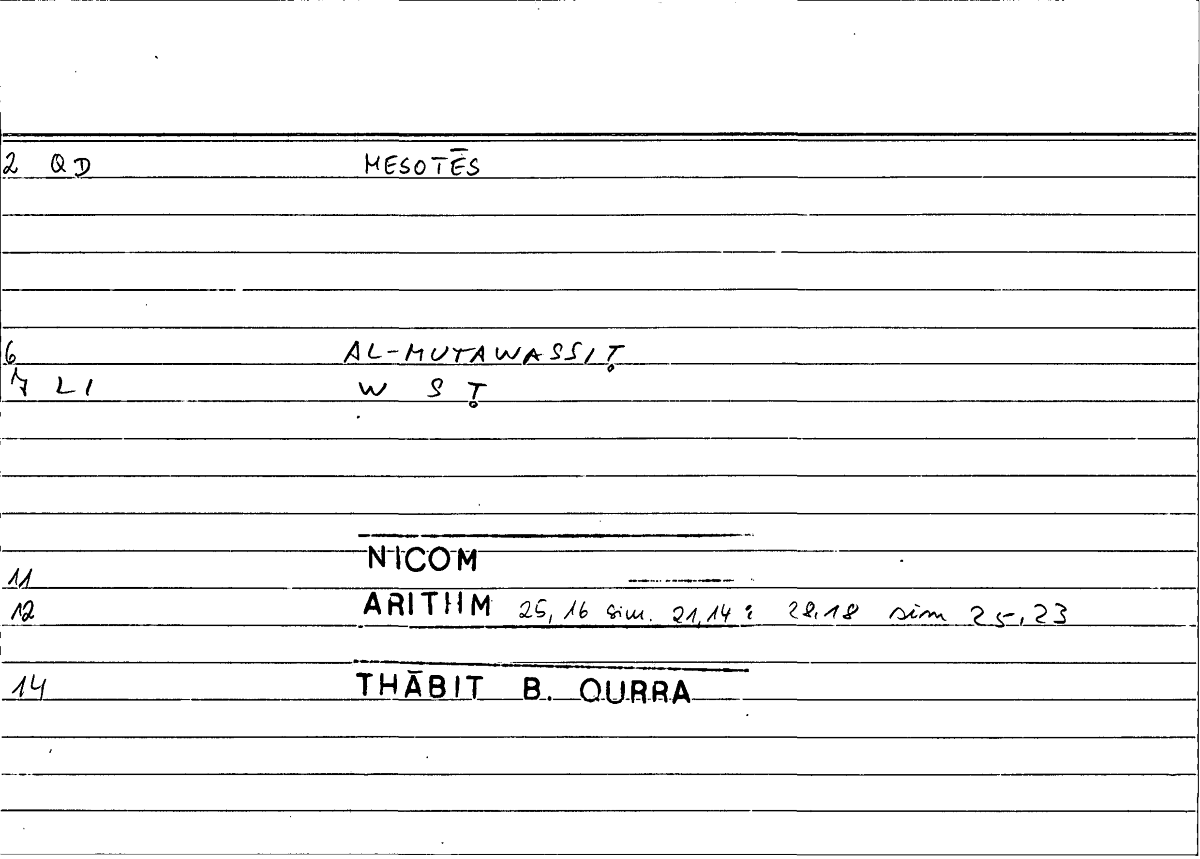 2 QD MESOTĒS
6 AL-MUTAWASSIṬ
7 LI W S Ṭ
NICOM
11
12 ARITHM 25,16 sim. 21,14 : 28,18 sim 25,23
14 THĀBIT B. QURRA